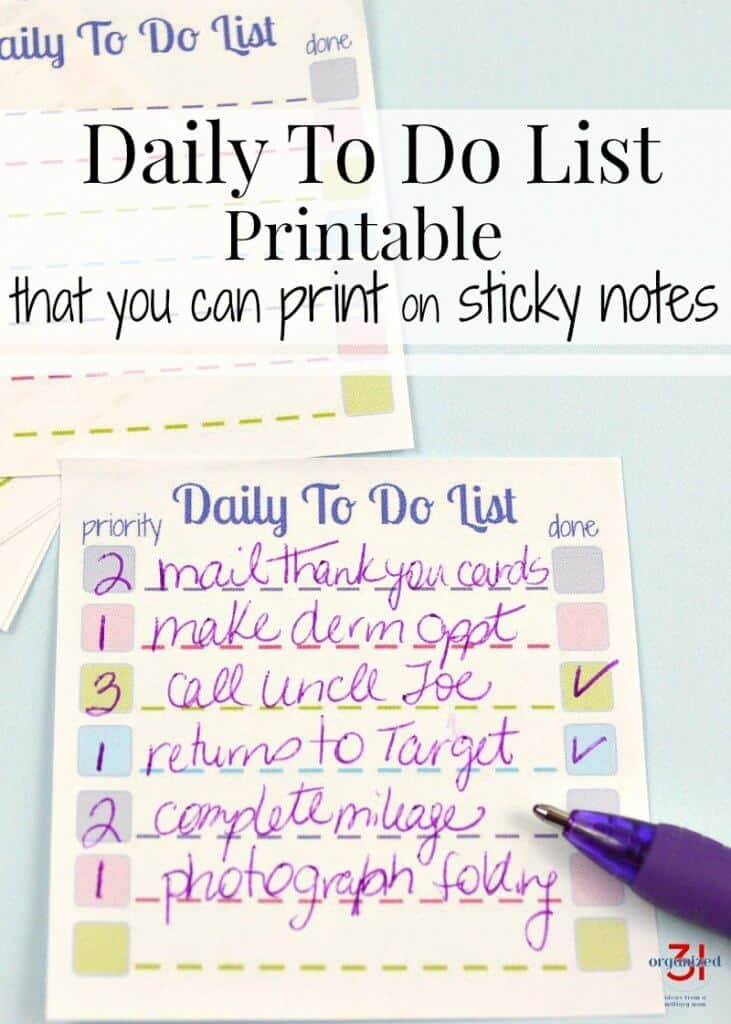 aily To Do List done
Daily To Do List
Printable
that you can print on sticky notes
priority Daily To Do List done
2 mail thank you cards
1 make derm appt
3 call Uncle Joe ✓
1 returns to Target ✓
2 complete mileage
1 photograph folding
organized 31
ideas from a
military mom